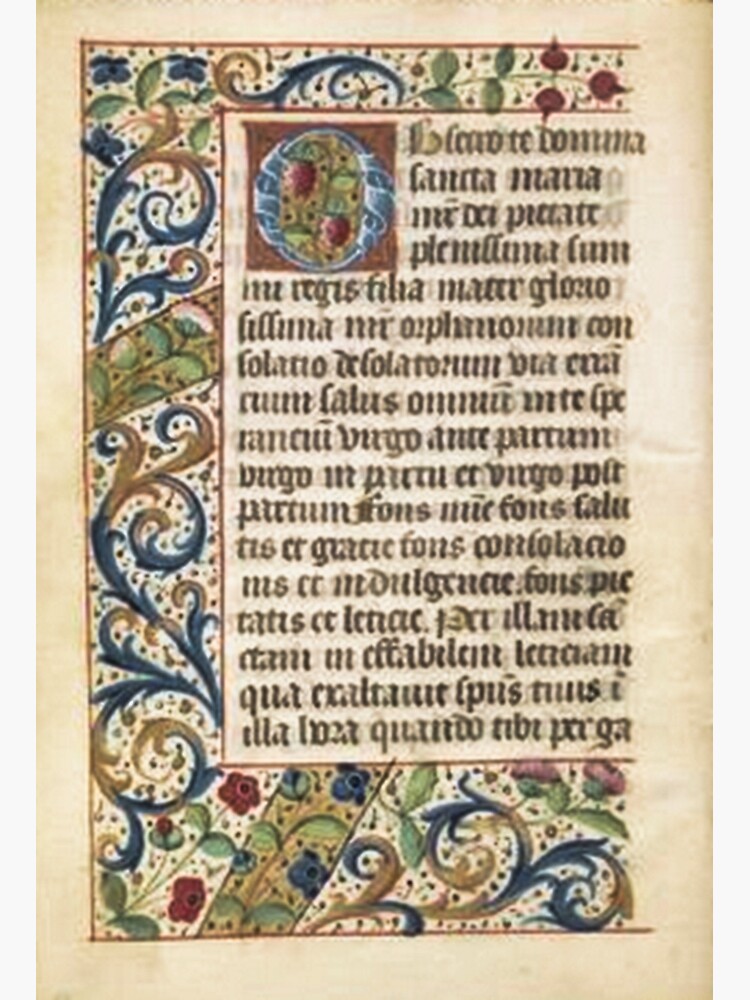 Obsecro te domina
sancta maria
mr̄ dei pietate
plenissima sum
mi regis filia mater glorio
sissima mr̄ orphanorum con
solatio desolatorum via errā
cium salus omniū in te spe
ranciū virgo ante partum
virgo in partu et virgo post
partum Fons mīe fons salu
tis et gracie fons consolacio
nis et indulgencie. fons pie
tatis et leticie. Per illam sā
ctam in effabilem leticiam
qua exaltauit spūs tuus ī
illa hora quando tibi per ga